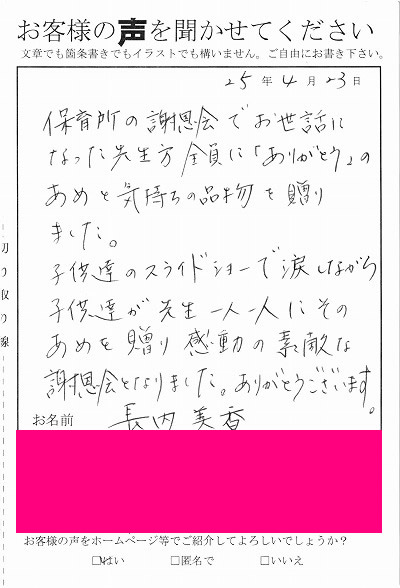 お客様の声を聞かせてください
文章でも箇条書きでもイラストでも構いません。ご自由にお書き下さい。
25年4月23日
保育所の謝恩会でお世話に
なった先生方全員に「ありがとう」の
あめと気持ちの品物を贈り
ました。
子供達のスライドショーで涙しながら
子供達が先生一人一人にその
あめを贈り感動の素敵な
謝恩会となりました。ありがとうございます。
お名前 長内 美香
お客様の声をホームページ等でご紹介してよろしいでしょうか?
□はい □匿名で □いいえ
切り取り線